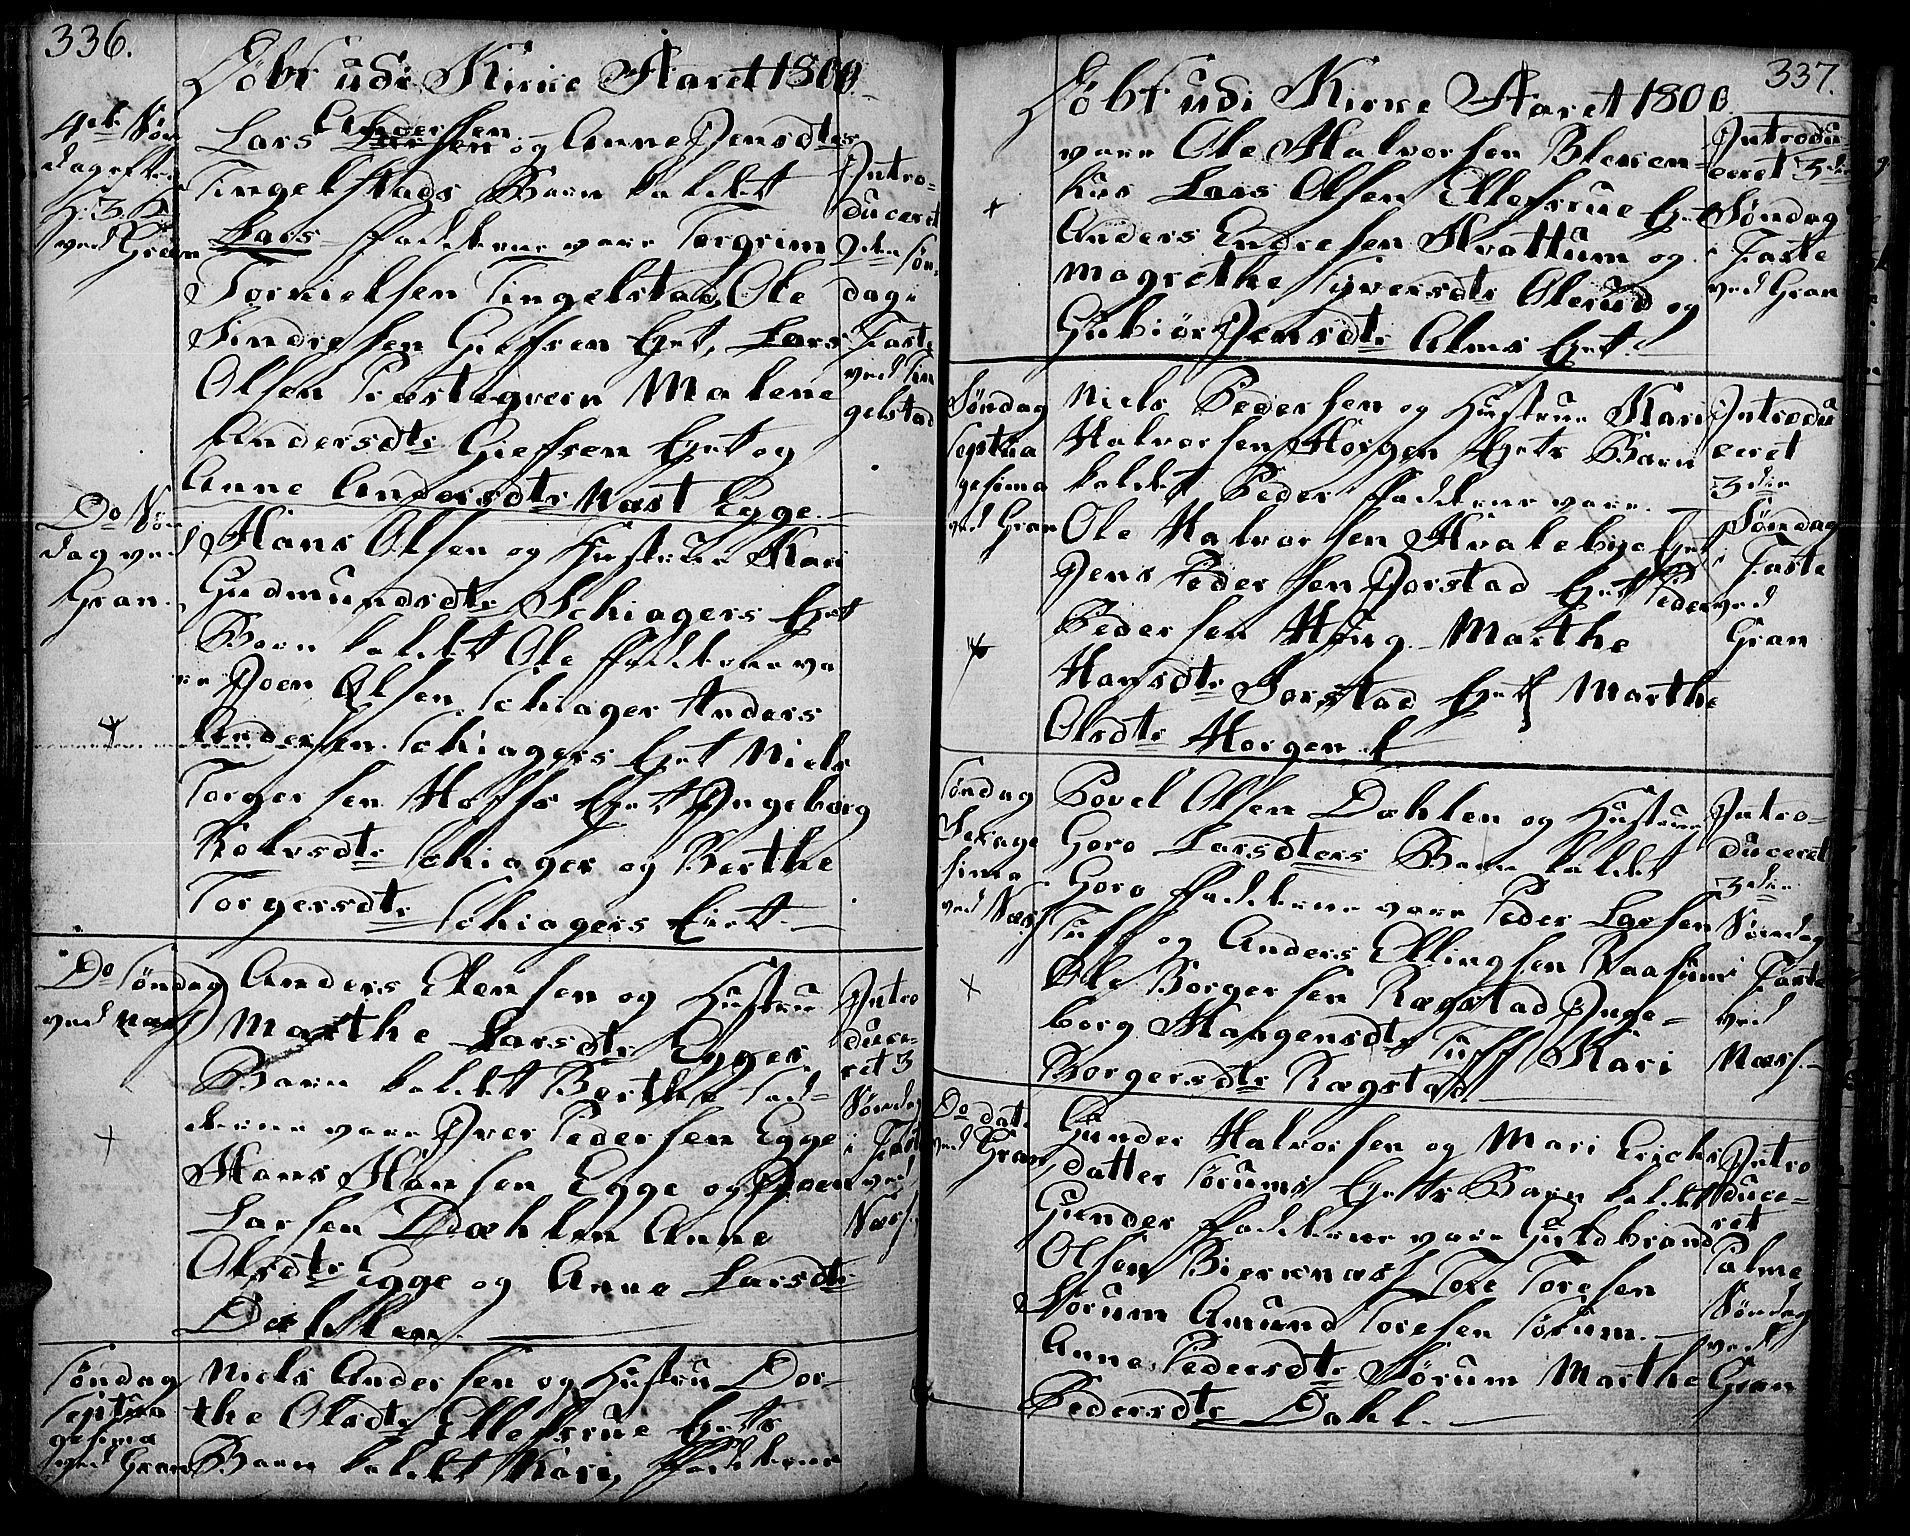 336.
Döbt udi Kirke Aaret 1800
4de Søn
dag efter
H: 3 K
ved Gran
Lars Andersen og Anne Jensdtrs
Tingelstads Barn kaldet
Lars Fadderne vare Torgrim
Tingelstad, Ole
Sindresen Giefsen Eyet, Lars
Olsen Præstegven Malene
Andersdtr Giefsen Eyet og
Anne Andersdtr Næst Egge.
Intro-
duceret
2den Søn
dag i
Faste
ved Tin
gelstad
Do Søn
dag ved
Gran.
Hans Olsen og Hustrue Kari
Gudmundsdtr Schiagers Eyet
Barn kaldet Ole Fadderne va
re Joen Olsen Schiager Anders
Andersen Schiagers Eyet Niels
Torgersen Hoffs Eyet Ingeborg
Rolvsdtr Schiager og Berthe
Torgersdtr Schiagers Eyet
Do Søndag
ved Næss
Anders Olensen og Hustrue
Marthe Larsdtr Egges
Barn kaldet Berthe Fad-
derne vare Iver Pedersen Egge
Hans Hansen Egge og Joen
Larsen Dæhlen Anne
Olsdtr Egge og Anne Larsdtr
Dæhlen.
Intro
duce-
ret 3
Søndag
i Faste
ved
Næss.
Søndag
Septua
gesima
ved Gran
Niels Andersen og Hustru Dor-
the Olsdtr Ellefsrue Eyets
Barn kaldet Kari, Fadderne
337.
Döbt udi Kirke Aaret 1800
vare Ole Halvorsen Bleken-
hus Lars Olsen Ellefsrue Eyet
Anders Endresen Hvattum og
Magrethe Syversdtr Olerud og
Gubiör Jensdtr Alms Eyet.
Introdu
ceret 3die
Søndag
i Faste
ved Gran
Søndag
Septua
gesima
ved Gran
Niels Pedersen og Hustrue Kari
Halvorsen Horgen Eyets Barn
kaldet Peder Fadderne vare.
Ole Halvorsen Hvalebye Eyet
Jens Pedersen Jorstad Eyet Peder
Pedersen Haug Marthe
Hansdtr Jorstad Eyet Marthe
Olsdtr Horgen.
Introdu
ceret
3die
Søndag
i Faste
ved
Gran
Søndag
Sexage
sima
ved Næss
Povel Olsen Dæhlen og Hustrue
Goro Larsdters Barn kaldet
Goro Fadderne vare Peder Larsen
Tuff og Anders Ellingsen Raasum
Ole Borgersen Rægstad Inge-
borg Haagensdtr Tuff Kari
Borgersdtr Rægstad
Intro-
duceret
3die
Søndag
i Faste
ved
Næss.
Do dat.
ved Gran
Gunder Halvorsen og Mari Erichs
datter Sörums Eyets Barn kaldet
Gunder Fadderne vare Guldbrand
Olsen Bierknæs Tore Toresen
Sörum Amund Toresen Sörum.
Anne Pedersdtr Sörum Marthe
Pedersdtr Dahl.
Intro
duce-
ret
Palme
Søndag
ved
Gran